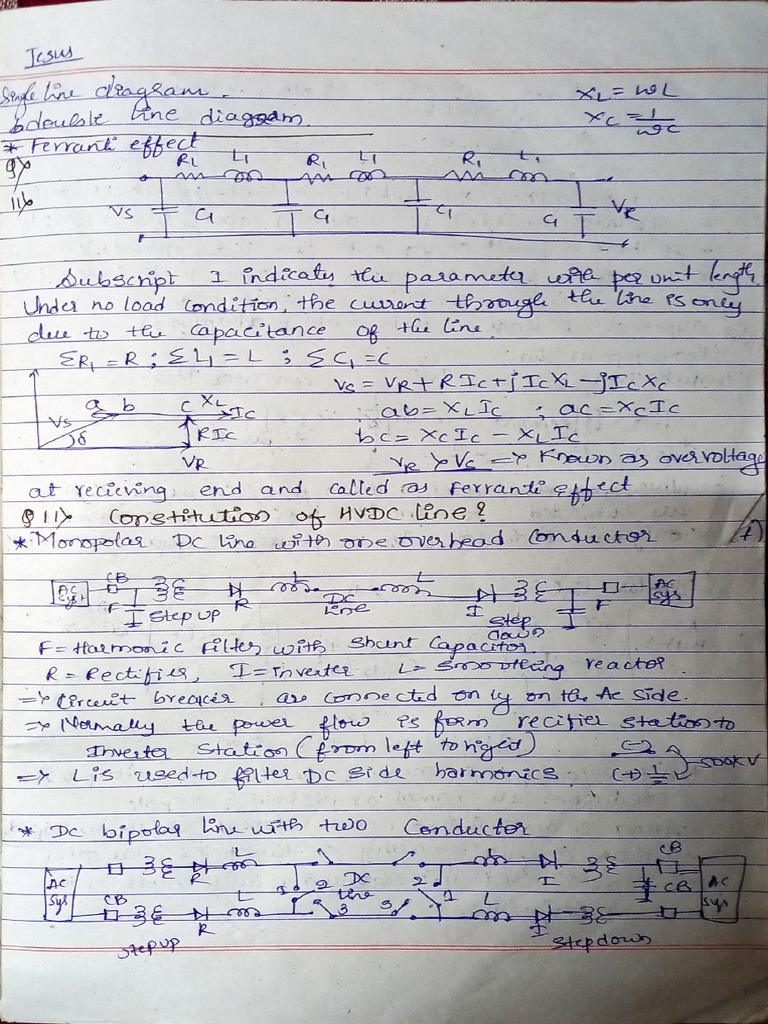 Jesus
Single line diagram.
double line diagram.
XL = ωL
XC = 1/ωC
* Ferranti effect
R1 L1 R1 L1 R1 L1
VS C1 C1 C1 C1 VR
Subscript 1 indicates the parameter with per unit length.
Under no load condition, the current through the line is only
due to the capacitance of the line.
ΣR1 = R ; ΣL1 = L ; ΣC1 = C
VS = VR + RIC + jICXL - jICXC
a b c XL IC
VS δ RIC
VR
ab = XLIC ; ac = XCIC
bc = XCIC - XLIC
VR > VS => Known as overvoltage
at recieving end and called as Ferranti effect
Q 11> Constitution of HVDC line?
* Monopolar DC line with one overhead conductor
AC Sys CB F Step up R L DC line L I Step down F AC Sys
F = Harmonic Filter with Shunt Capacitor
R = Rectifier, I = inverter L = Smoothing reactor
=> Circuit breaker are connected only on the AC side.
=> Normally the power flow is form recifier station to
Inverter Station (from left to riged)
=> L is used to filter DC side harmonics
(-)
(+) 500KV
* DC bipolar line with two Conductor
AC Sys CB R L 1 2 DC line 2 1 L I CB AC Sys
CB R L 3 3 L I CB
Step up Step down